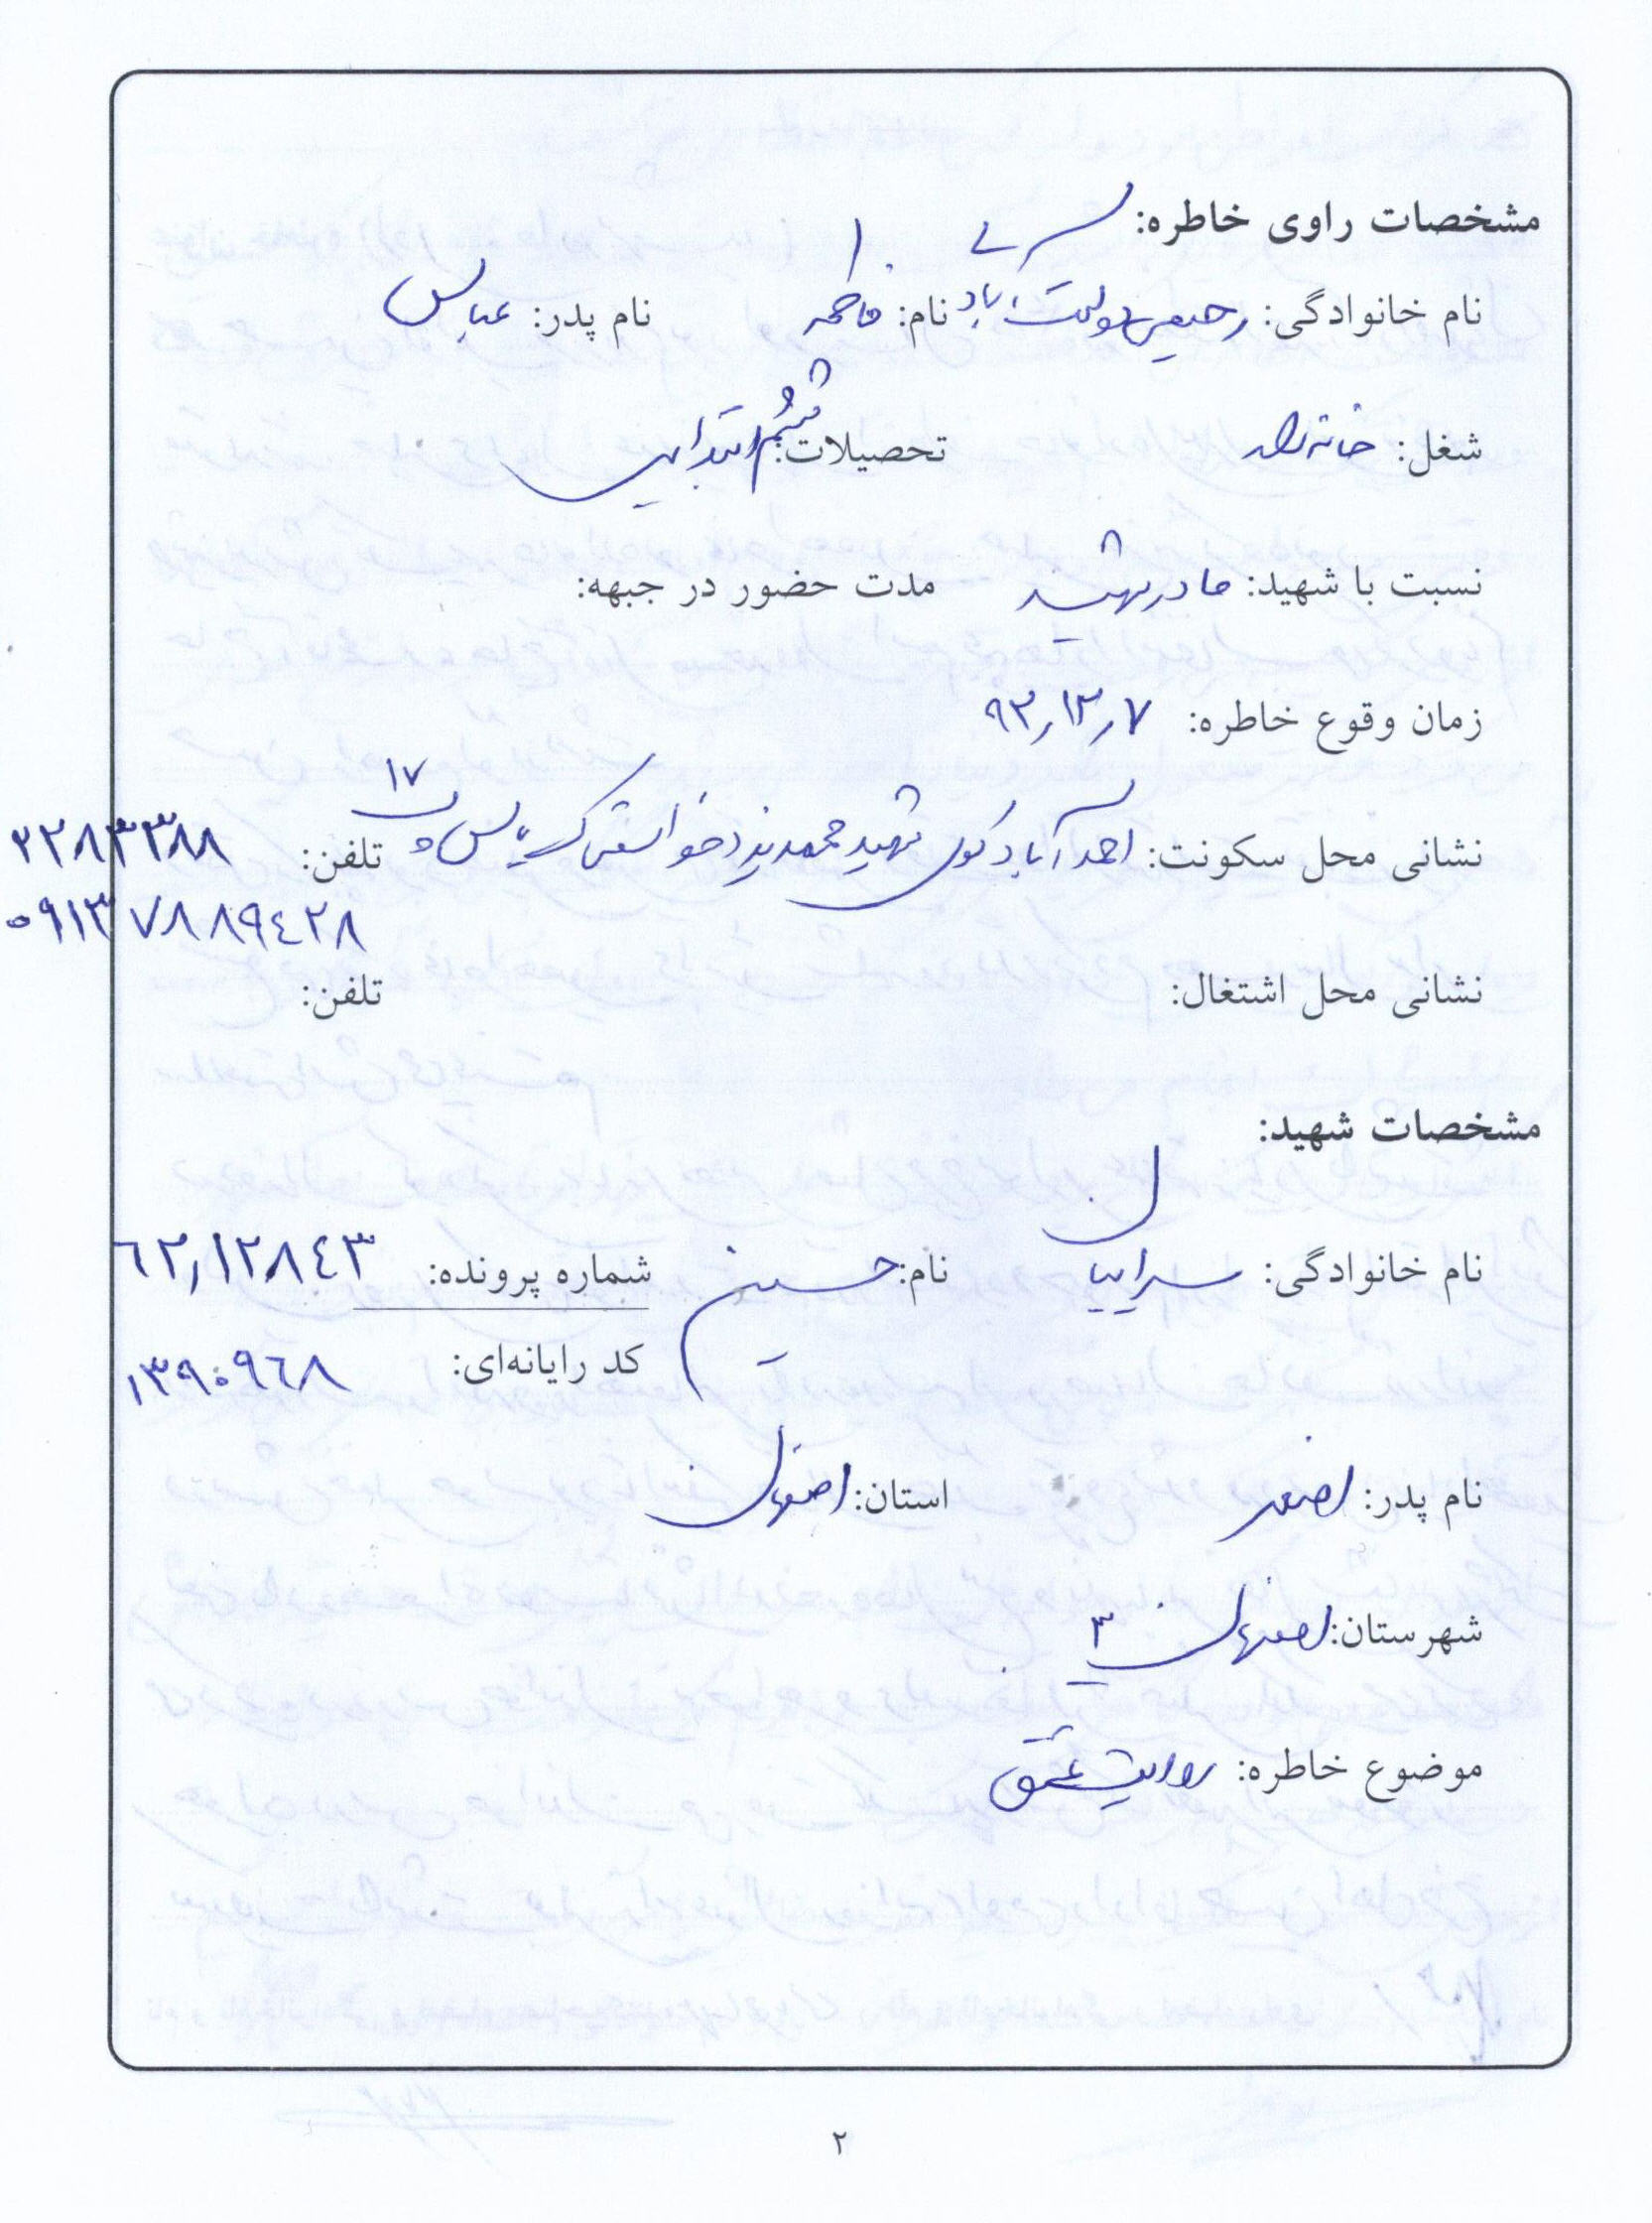 مشخصات راوی خاطره:
نام خانوادگی: رحیمی دولت آبادی نام: فاطمه نام پدر: عباس
شغل: خانه دار تحصیلات: ششم ابتدایی
نسبت با شهید: مادر شهید مدت حضور در جبهه:
زمان وقوع خاطره: ۹۳٫۱۲٫۷
نشانی محل سکونت: احمد آباد کوی شهید محمد یزدخواستی یاس ۱۷ تلفن: ۲۲۸۳۳۸۸
۰۹۱۳۷۸۸۹۴۲۸
نشانی محل اشتغال: تلفن:
مشخصات شهید:
نام خانوادگی: سراییان نام: حسین شماره پرونده: ۶۲٫۱۲۸۴۳
کد رایانه‌ای: ۱۳۹۰۹۶۸
نام پدر: اصغر استان: اصفهان
شهرستان: اصفهان ۳
موضوع خاطره: روایت عشق
۲